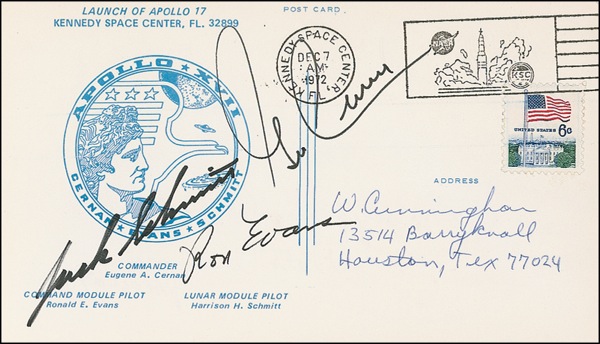 LAUNCH OF APOLLO 17
KENNEDY SPACE CENTER, FL. 32899
POST CARD
KENNEDY SPACE CENTER,
DEC 7
AM
1972
FL
NASA
KSC
UNITED STATES 6c
APOLLO XVII
CERNAN EVANS SCHMITT
Gene Cernan
Jack Schmitt
Ron Evans
COMMANDER
Eugene A. Cernan
COMMAND MODULE PILOT
Ronald E. Evans
LUNAR MODULE PILOT
Harrison H. Schmitt
ADDRESS
W. Cunningham
13514 Barryknoll
Houston, Tex 77024